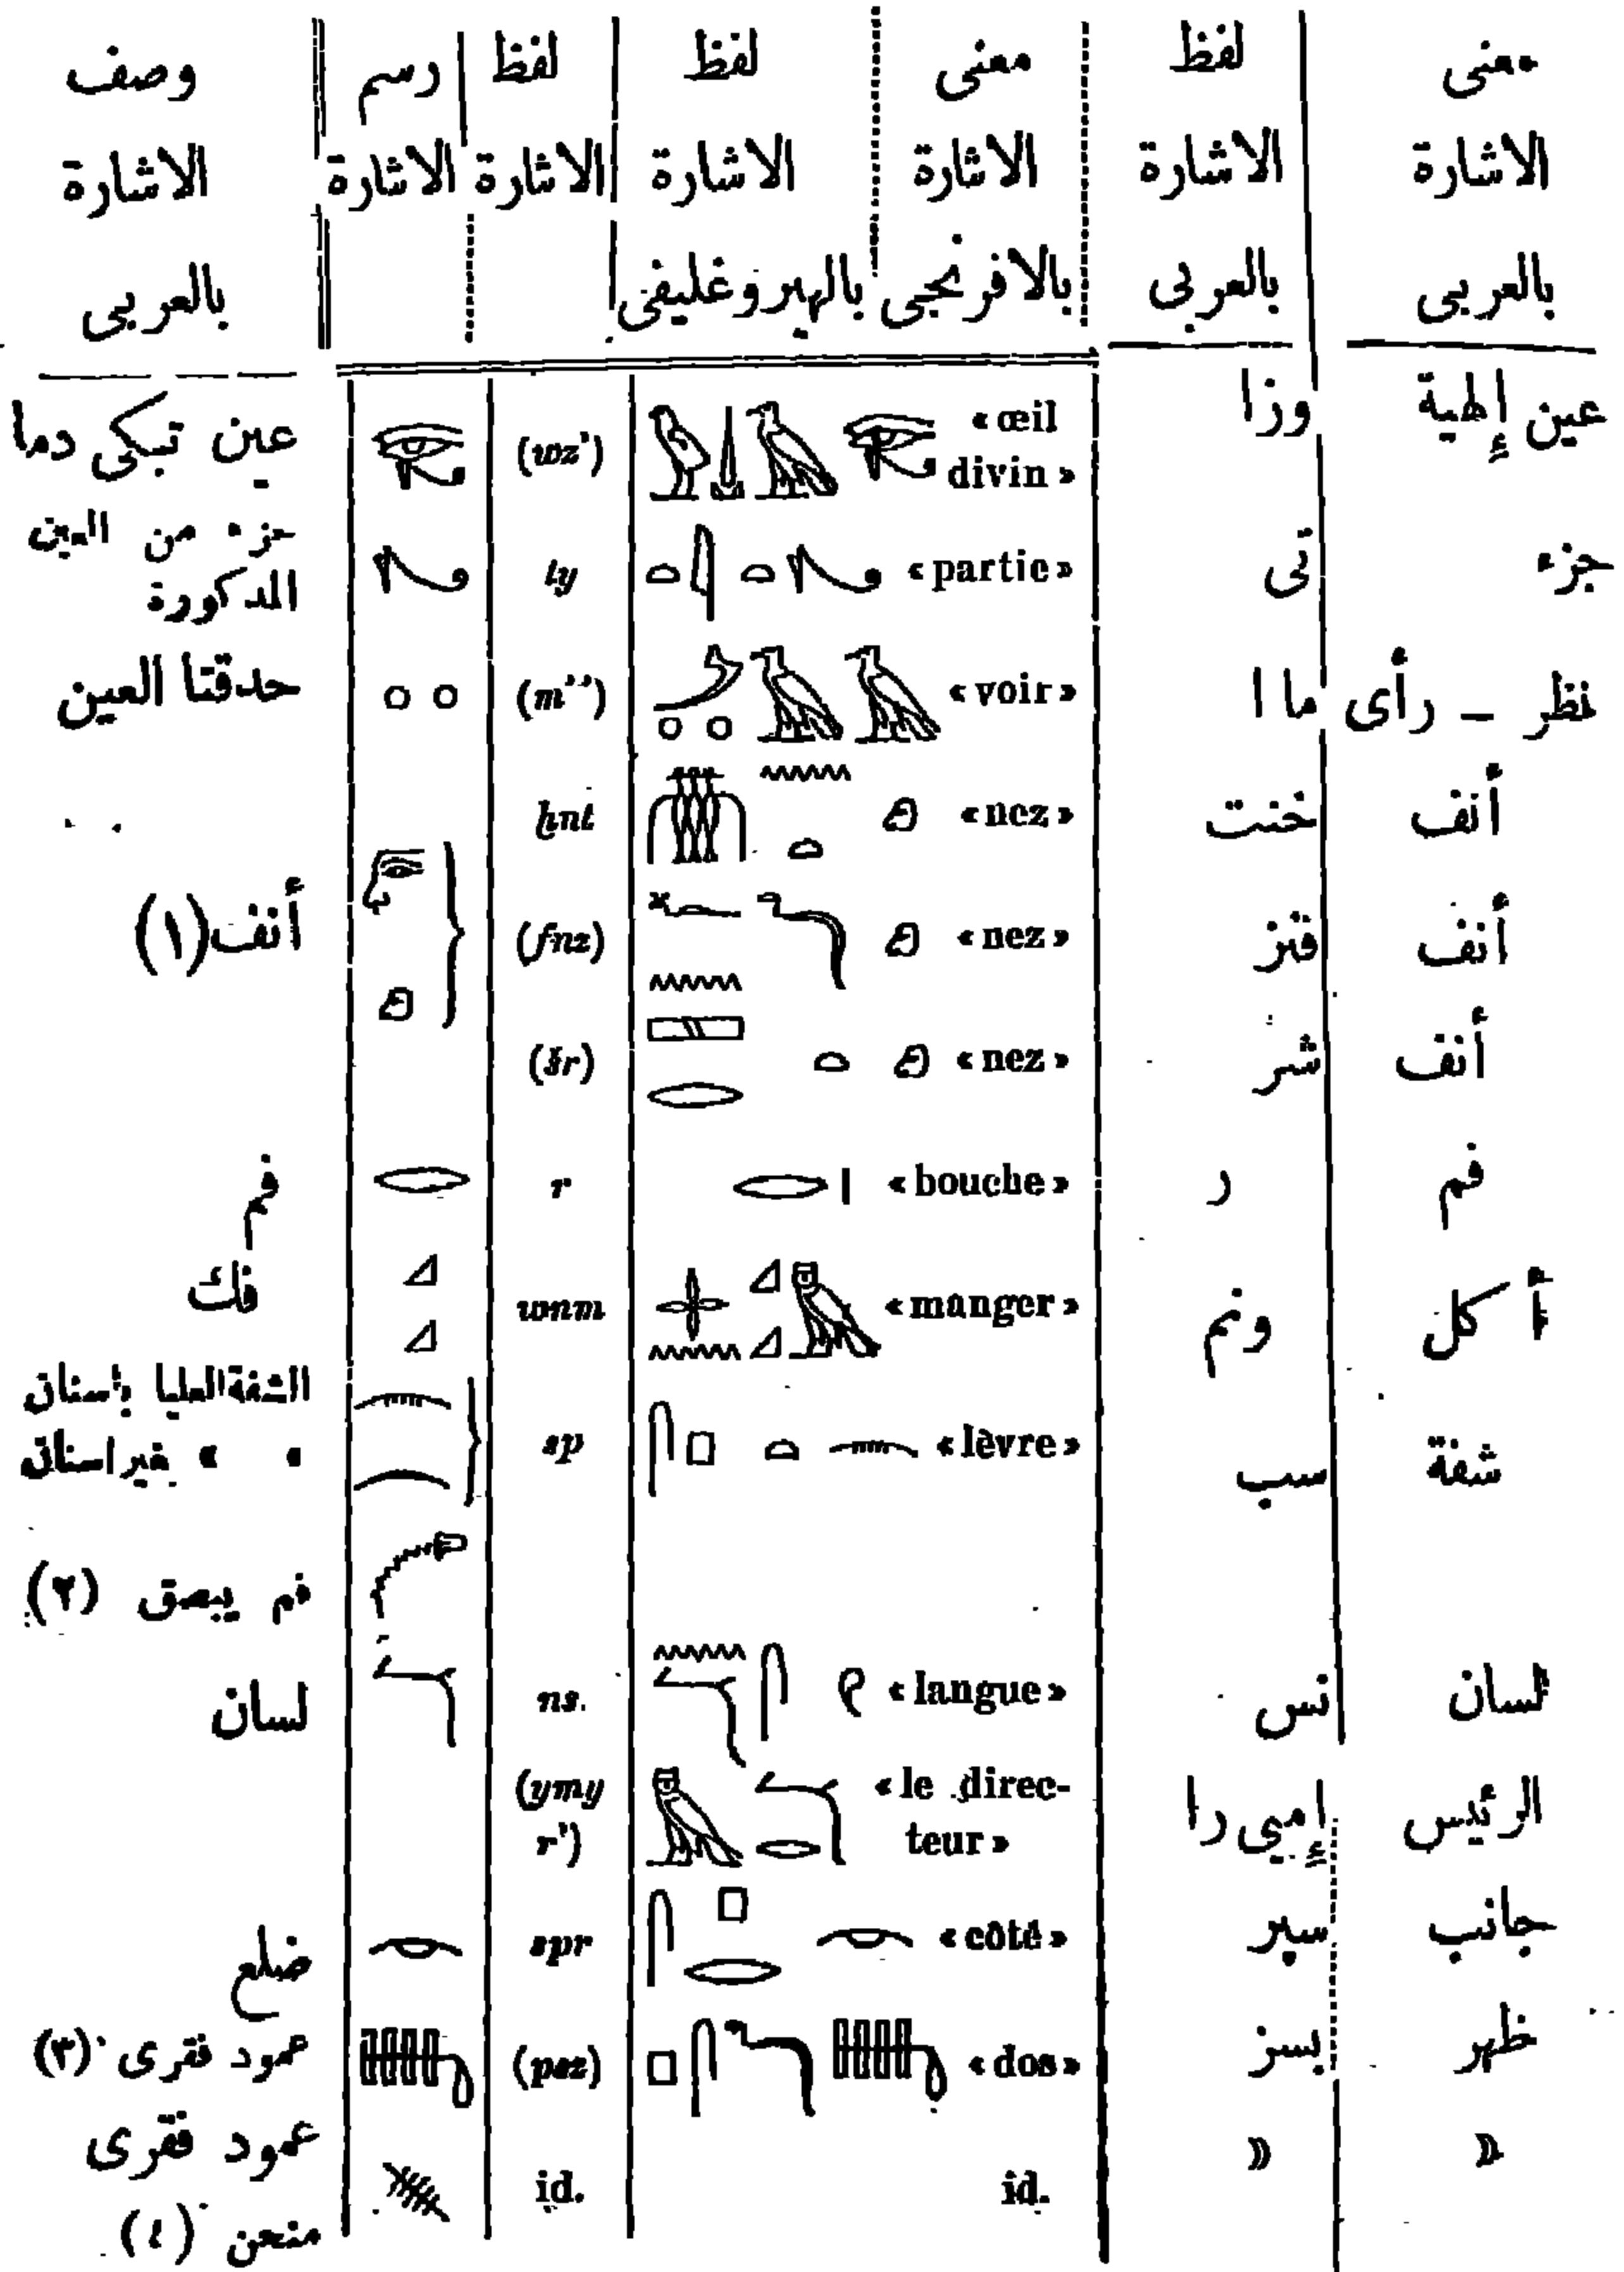 معنى لفظ معنى لفظ لفظ رسم وصف
الاشارة الاشارة الاشارة الاشارة الاشارة الاشارة الاشارة
بالعربى بالعربى بالافرنجى بالهيروغليفى بالعربى
عين إلهية وزا « œil divin » (wz') عين تبكى دما
جزء تى « partie » ty جزء من العين المذكورة
نظر – رأى ما ا « voir » (m'') حدقتا العين
أنف خنت « nez » ḫnt
أنف فنز « nez » (fnz) أنف (١)
أنف شر « nez » (šr)
فم ر « bouche » r فم
أكل ونم « manger » wnm فك
شفة سب « lèvre » sp الشفة العليا باسنان
» » غير اسنان
فم يبصق (٢)
لسان نس « langue » ns. لسان
الرئيس إميى را « le direc-teur » (ymy r')
جانب سپر « côté » spr ضلع
ظهر بسز « dos » (psz) عمود فقرى (٣)
» » id. id. عمود فقرى
منحن (٤)